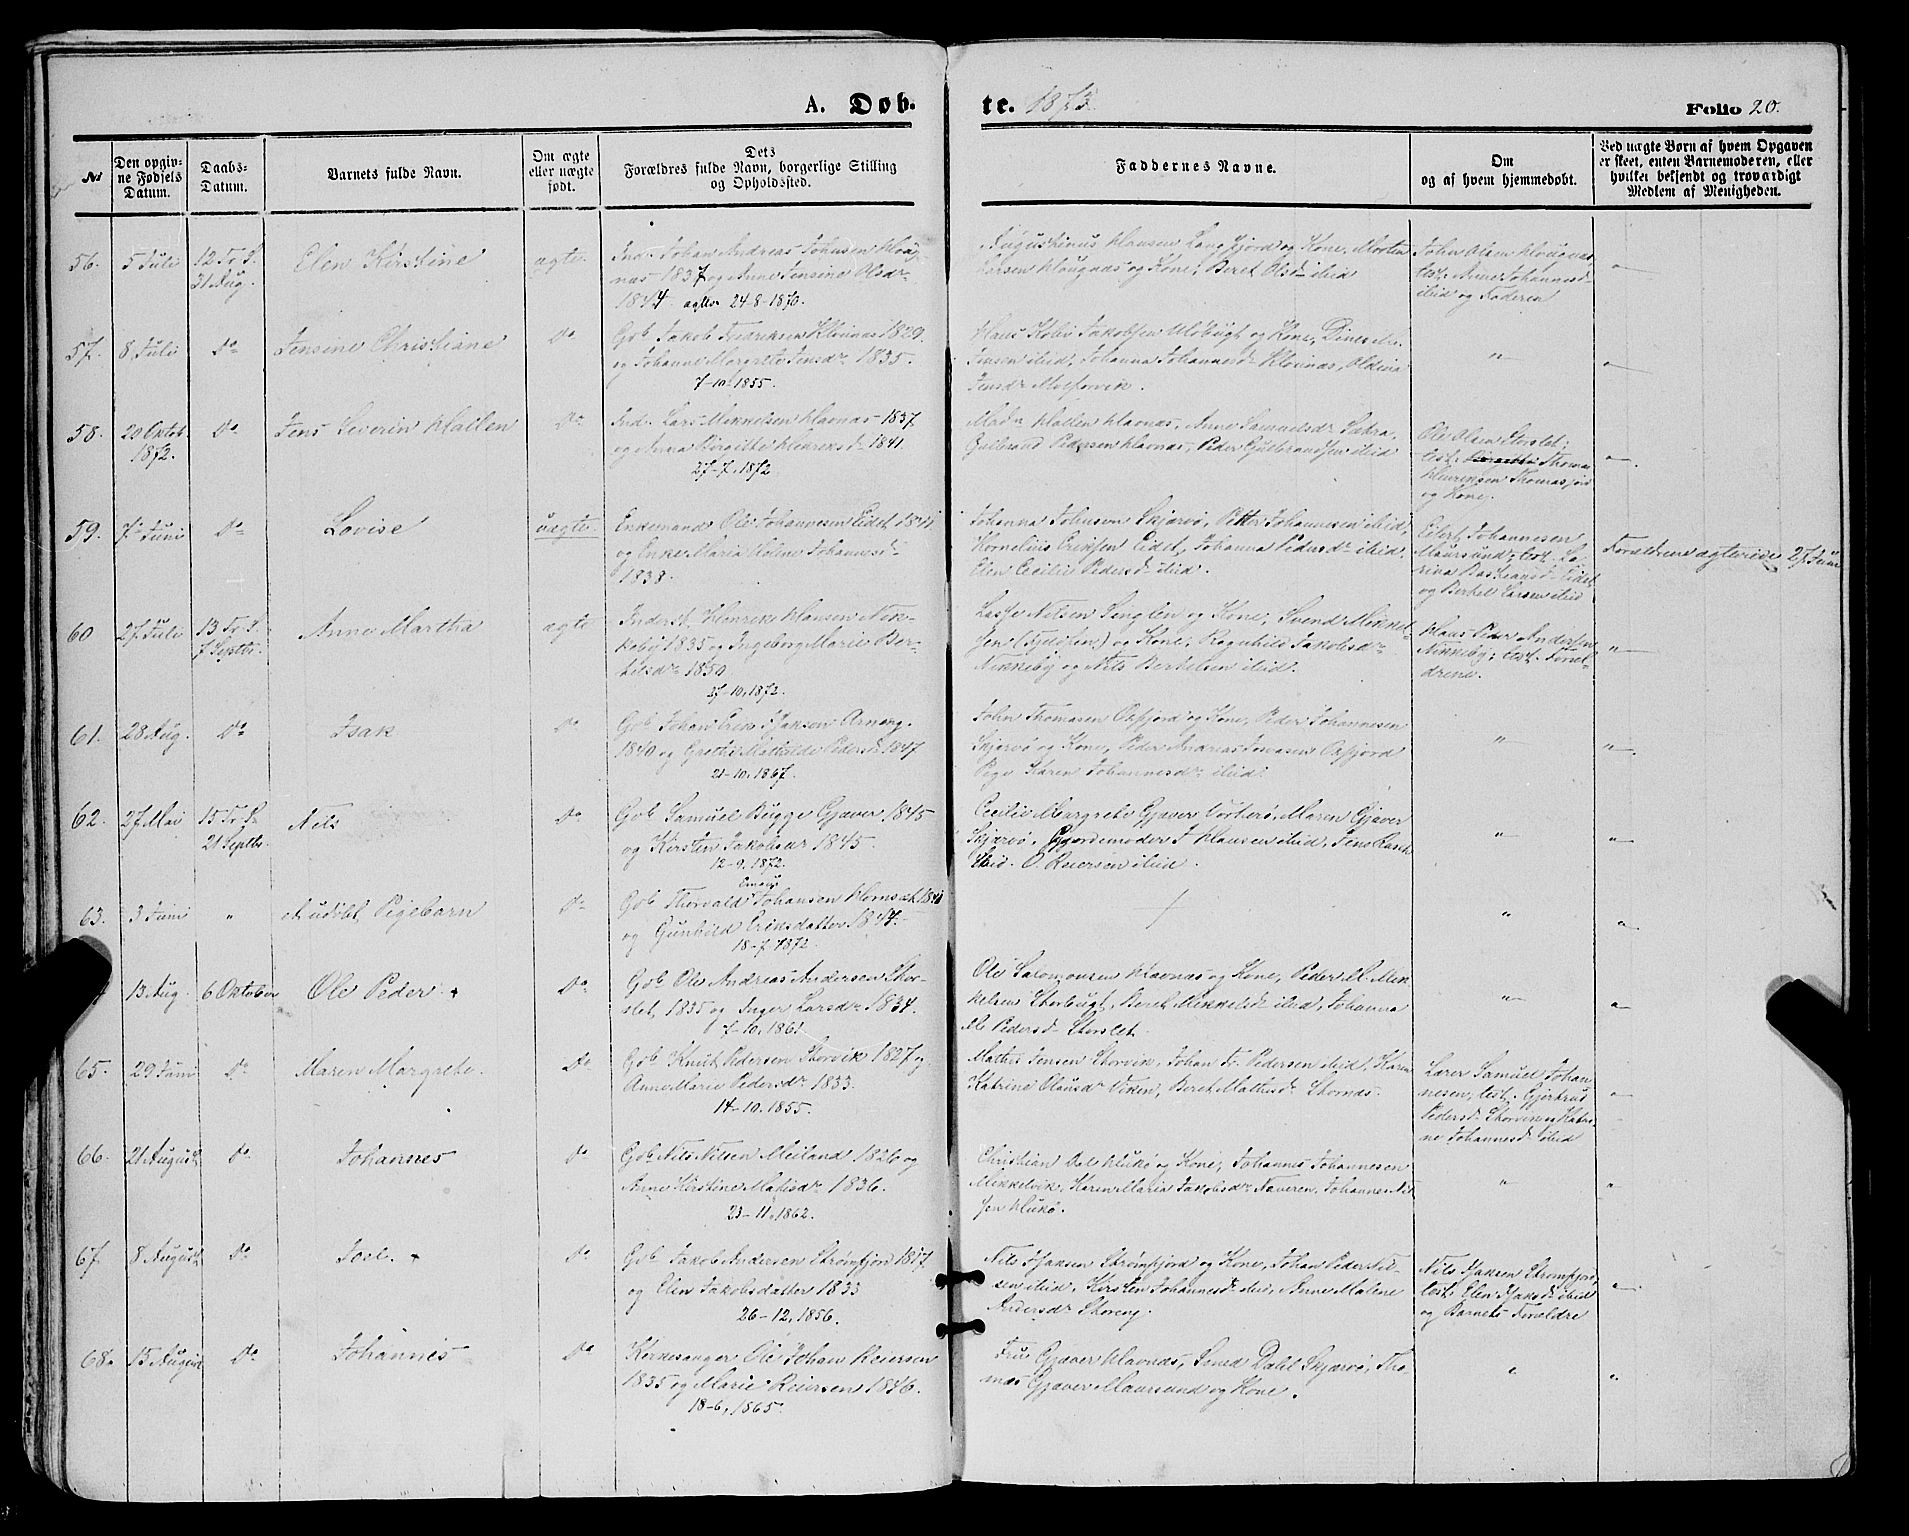 A. Døb-
te. 1873.
Folio 20.
No
Den opgiv-
ne Fødsels
Datum.
Daabs-
Datum.
Barnets fulde Navn.
Om ægte
eller uægte
født.
Dets
Forældres fulde Navn, borgerlige Stilling
og Opholdssted.
Faddernes Navne.
Om
og af hvem hjemmedøbt.
Ved uægte Børn af hvem Opgaven
er skeet, enten Barnemoderen, eller
hvilket bekjendt og troværdigt
Medlem af Menigheden.
56. 5 Juli
12 Tr. S.
31 Aug.
Elen Kirstine
ægte
Ind. Johan Andreas Johnsen
1837 og Anne Jensine Olsdr
1844 ægtev. 24-8-1870.
Augustinus Hansen Langfjord og Kone, Morten
Larsen og Kone, Beret Olsd ibid
John Olsen
test. Anne Johannesd
ibid og Faderen
"
57. 8 Juli
Do
Jensine Christiane
Do
Gbr Jakob Fredriksen 1829
og Johanne Margrete Jensdr 1835.
7-10-1855.
Hans Jakobsen og Kone,
Jensen ibid, Johanna Johannesd
Jensdr
"
"
58. 20 Oktob.
1872.
Do
Jens Severin Hallen
Do
Ind. Lars Mikkelsen Havnæs 1837
og Anna Birgitte Henriksd 1841
27-7, 1872
Mad Hallen Havnæs, Anne Samuelsdr
Gulbrand Pedersen Havnæs, Peder Gulbrandsen ibid
Ole Olsen Storslet;
test. Thomas
Henriksen
og Kone.
"
59. 7 Juni
Do
Lovise
uægte
Enkemand Ole Johannesen Eidet 1841
og Enke Maria Johannesd
1838.
Johanna Johnsen Skjærvø, Petter Johannesen ibid,
Kornelius Eriksen Eidet, Johanna Pedersdr ibid,
Elen Cecilie Pedersd ibid.
Eilert Johannesen
Maursund; test.
Eidet
og Berthel Larsen ibid
Forældrene ægteviede 27 Juni
60 27 Juli
13 Tr. S.
7 Septbr.
Anne Martha
ægte
Inderst Henrik Hansen Nik-
keby 1835 og Ingeborg Marie Ber-
thelsdr 1850
27-10, 1872.
Lasse Nilsen Senglen og Kone, Svend Mikkel-
sen og Kone, Ragnhild Jakobsdr
Nikkeby og Nils Berthelsen ibid.
Hans Peder Andersen
Nikkeby; test. Foræl-
drene.
"
61. 28 Aug.
Do
Isak
Do
Gbr Johan Erik Isaksen Arnøng.
1840 og Grethe Mathilde Pedersd 1847
21-10, 1867.
John Thomasen Oxfjord og Kone, Peder Johannesen
Skjærvø og Kone, Peder Andreas Oxfjord
Pige Karen Johannesdr ibid.
"
"
62. 27 Mai
15 Tr. S.
21 Septbr.
Nils
Do
Gbr Samuel Bugge Gjæver 1845
og Kirsten Jakobsen 1845.
12-9, 1872.
Cecilie Margrete Gjæver Vorterø, Maren Gjæver
Skjærvø, Gjordemoder J. Hansen ibid, Jens Rasch
ibid. O. Reiersen ibid.
"
"
63. 3 Juni
"
Et udøbt Pigebarn
Do
Emaus
Gbr Thorvald Johansen
og Gunhild Eriksdatter 1847.
18-7, 1872.
+
"
"
13 Aug.
6 Oktober
Ole Peder.
Do
Gbr Ole Andreas Andersen Stor-
slet, 1835 og Inger Larsdr 1834.
7-10, 1861.
Ole Salomonsen Havnæs og Kone, Peder M. Mik-
kelsen Storbugt, Beret Mikkelsd ibid, Johanna
M. Pedersd Storslet.
"
"
65. 29 Juni
Do
Maren Margrete.
Do
Gbr Knut Pedersen Storvik 1827 og
Anne Marie Pedersdr 1833.
14-10. 1855.
Mathis Jensen Storvik, Johan Fr. Pedersen ibid, Karen
Katrine Olausdr Viken, Beret Mathisd Stornæs.
Lærer Samuel Johan-
nesen; test. Gjertrud
Pedersd Storvik og Katri-
ne Johannesd ibid
"
66. 21 August
Do
Johannes
Do
Gbr Nils Nilsen Meiland 1826 og
Anne Kirstine Matisdr 1836.
23-11, 1862.
Christian Dal Hukø og Kone, Johannes Johannesen
Mikkelvik, Karen Maria Jakobsdr Naveren, Johannes Nil-
sen Hukø.
"
"
67. 8 August
Do
Joel.
Do
Gbr Jakob Andersen Strømfjord 1817
og Elen Jakobsdatter 1833
26-12, 1856.
Nils Isaksen Strømfjord og Kone, Johan Peder Nil-
sen ibid, Kirsten Johannesd ibid, Anne Malene
Andersdr Storeng.
Nils Isaksen Strømfjord,
test. Elen Isaksd ibid
og Barnets Forældre
"
68. 15 August
Do
Johannes
Do
Kirkesanger Ole Johan Reiersen
1835 og Marie Reiersen 1846.
18-6, 1865.
Fru Gjæver Havnæs, Smed Dahl Skjærvø, Tho-
mas Gjæver Maursund og Kone.
"
"